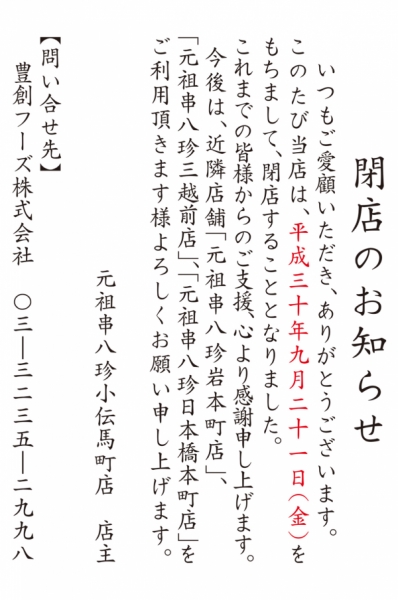 閉店のお知らせ
いつもご愛顧いただき、ありがとうございます。
このたび当店は、平成三十年九月二十一日（金）を
もちまして、閉店することとなりました。
これまでの皆様からのご支援、心より感謝申し上げます。
今後は、近隣店舗「元祖串八珍岩本町店」、
「元祖串八珍三越前店」、「元祖串八珍日本橋本町店」を
ご利用頂きます様よろしくお願い申し上げます。
元祖串八珍小伝馬町店　店主
【問い合せ先】
豊創フーズ株式会社　〇三―三二三五―二九九八